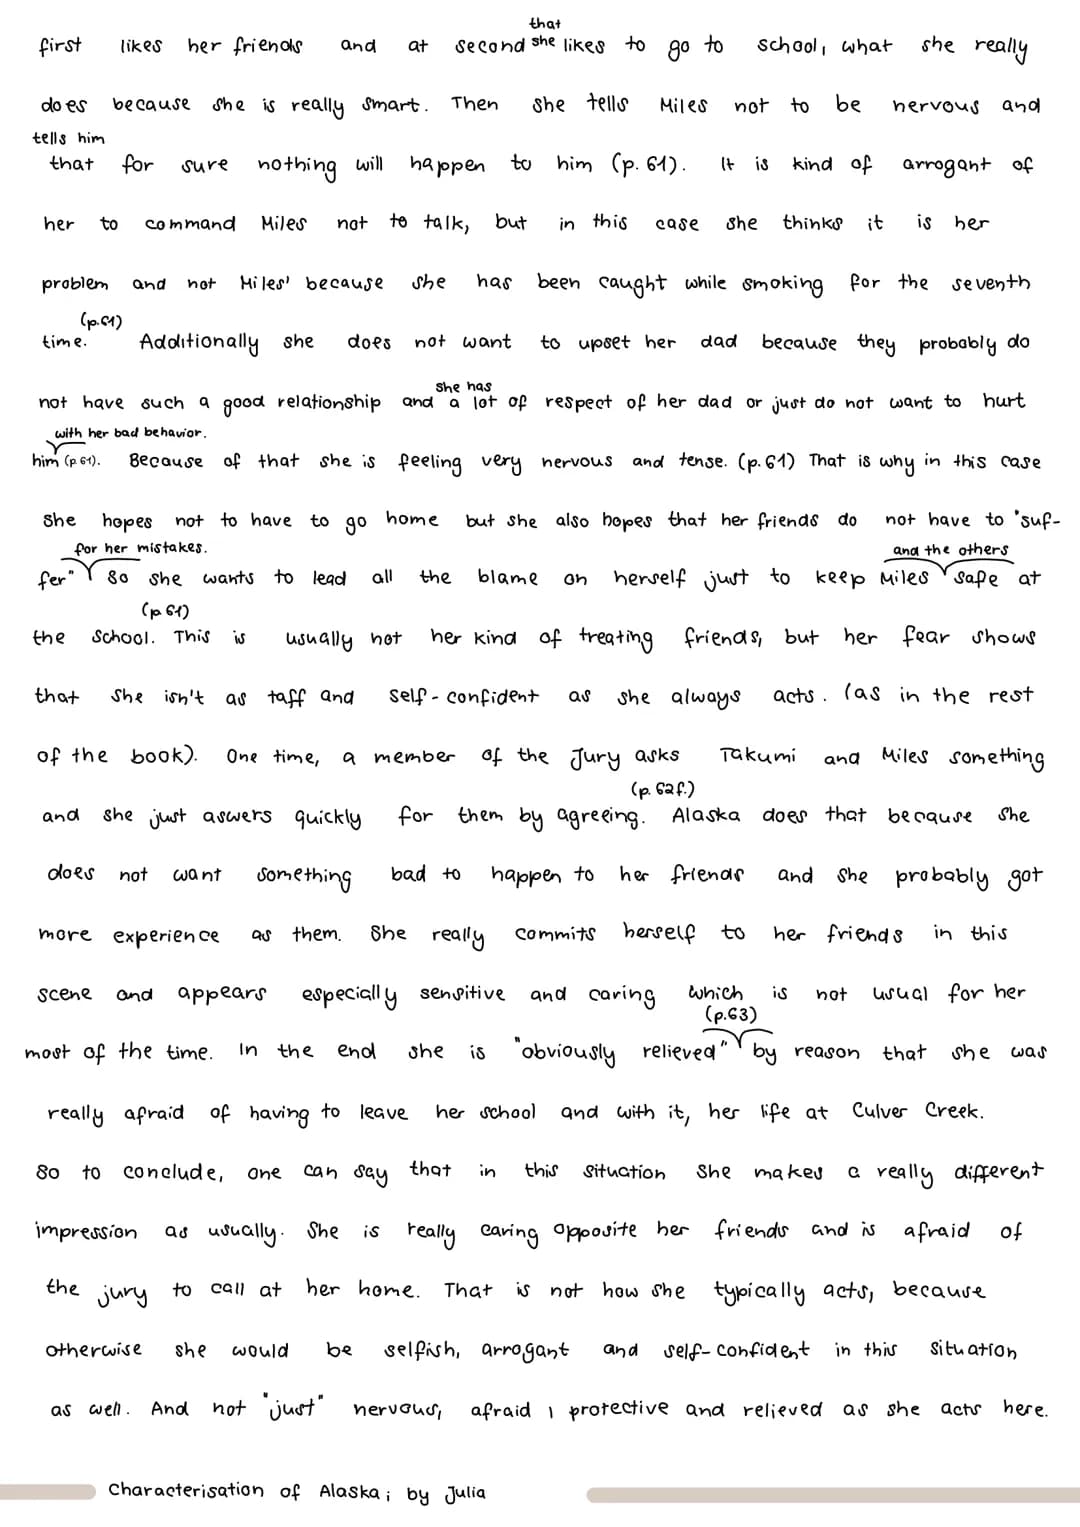 that
first likes her friends and at second she likes to go to school, what she really
does because she is really smart. Then she tells Miles not to be nervous and
tells him
that for sure nothing will happen to him (p. 61). It is kind of arrogant of
her to command Miles not to talk, but in this case she thinks it is her
problem and not Miles' because she has been caught while smoking for the seventh
(p.61)
time. Additionally she does not want to upset her dad because they probably do
she has
not have such a good relationship and a lot of respect of her dad or just do not want to hurt
with her bad behavior.
him (p.61). Because of that she is feeling very nervous and tense. (p.61) That is why in this case
she hopes not to have to go home but she also hopes that her friends do not have to "suf-
for her mistakes. and the others
fer" so she wants to lead all the blame on herself just to keep Miles safe at
(p.61)
the school. This is usually not her kind of treating friends, but her fear shows
that she isn't as taff and self-confident as she always acts. (as in the rest
of the book). One time, a member of the Jury asks Takumi and Miles something
(p. 62f.)
and she just aswers quickly for them by agreeing. Alaska does that because she
does not want something bad to happen to her friends and she probably got
more experience as them. She really commits herself to her friends in this
scene and appears especially sensitive and caring which is not usual for her
(p.63)
most of the time. In the end she is "obviously relieved" by reason that she was
really afraid of having to leave her school and with it, her life at Culver Creek.
So to conclude, one can say that in this situation she makes a really different
impression as usually. She is really caring opposite her friends and is afraid of
the jury to call at her home. That is not how she typically acts, because
otherwise she would be selfish, arrogant and self-confident in this situation
as well. And not "just" nervous, afraid, protective and relieved as she acts here.
Characterisation of Alaska; by Julia